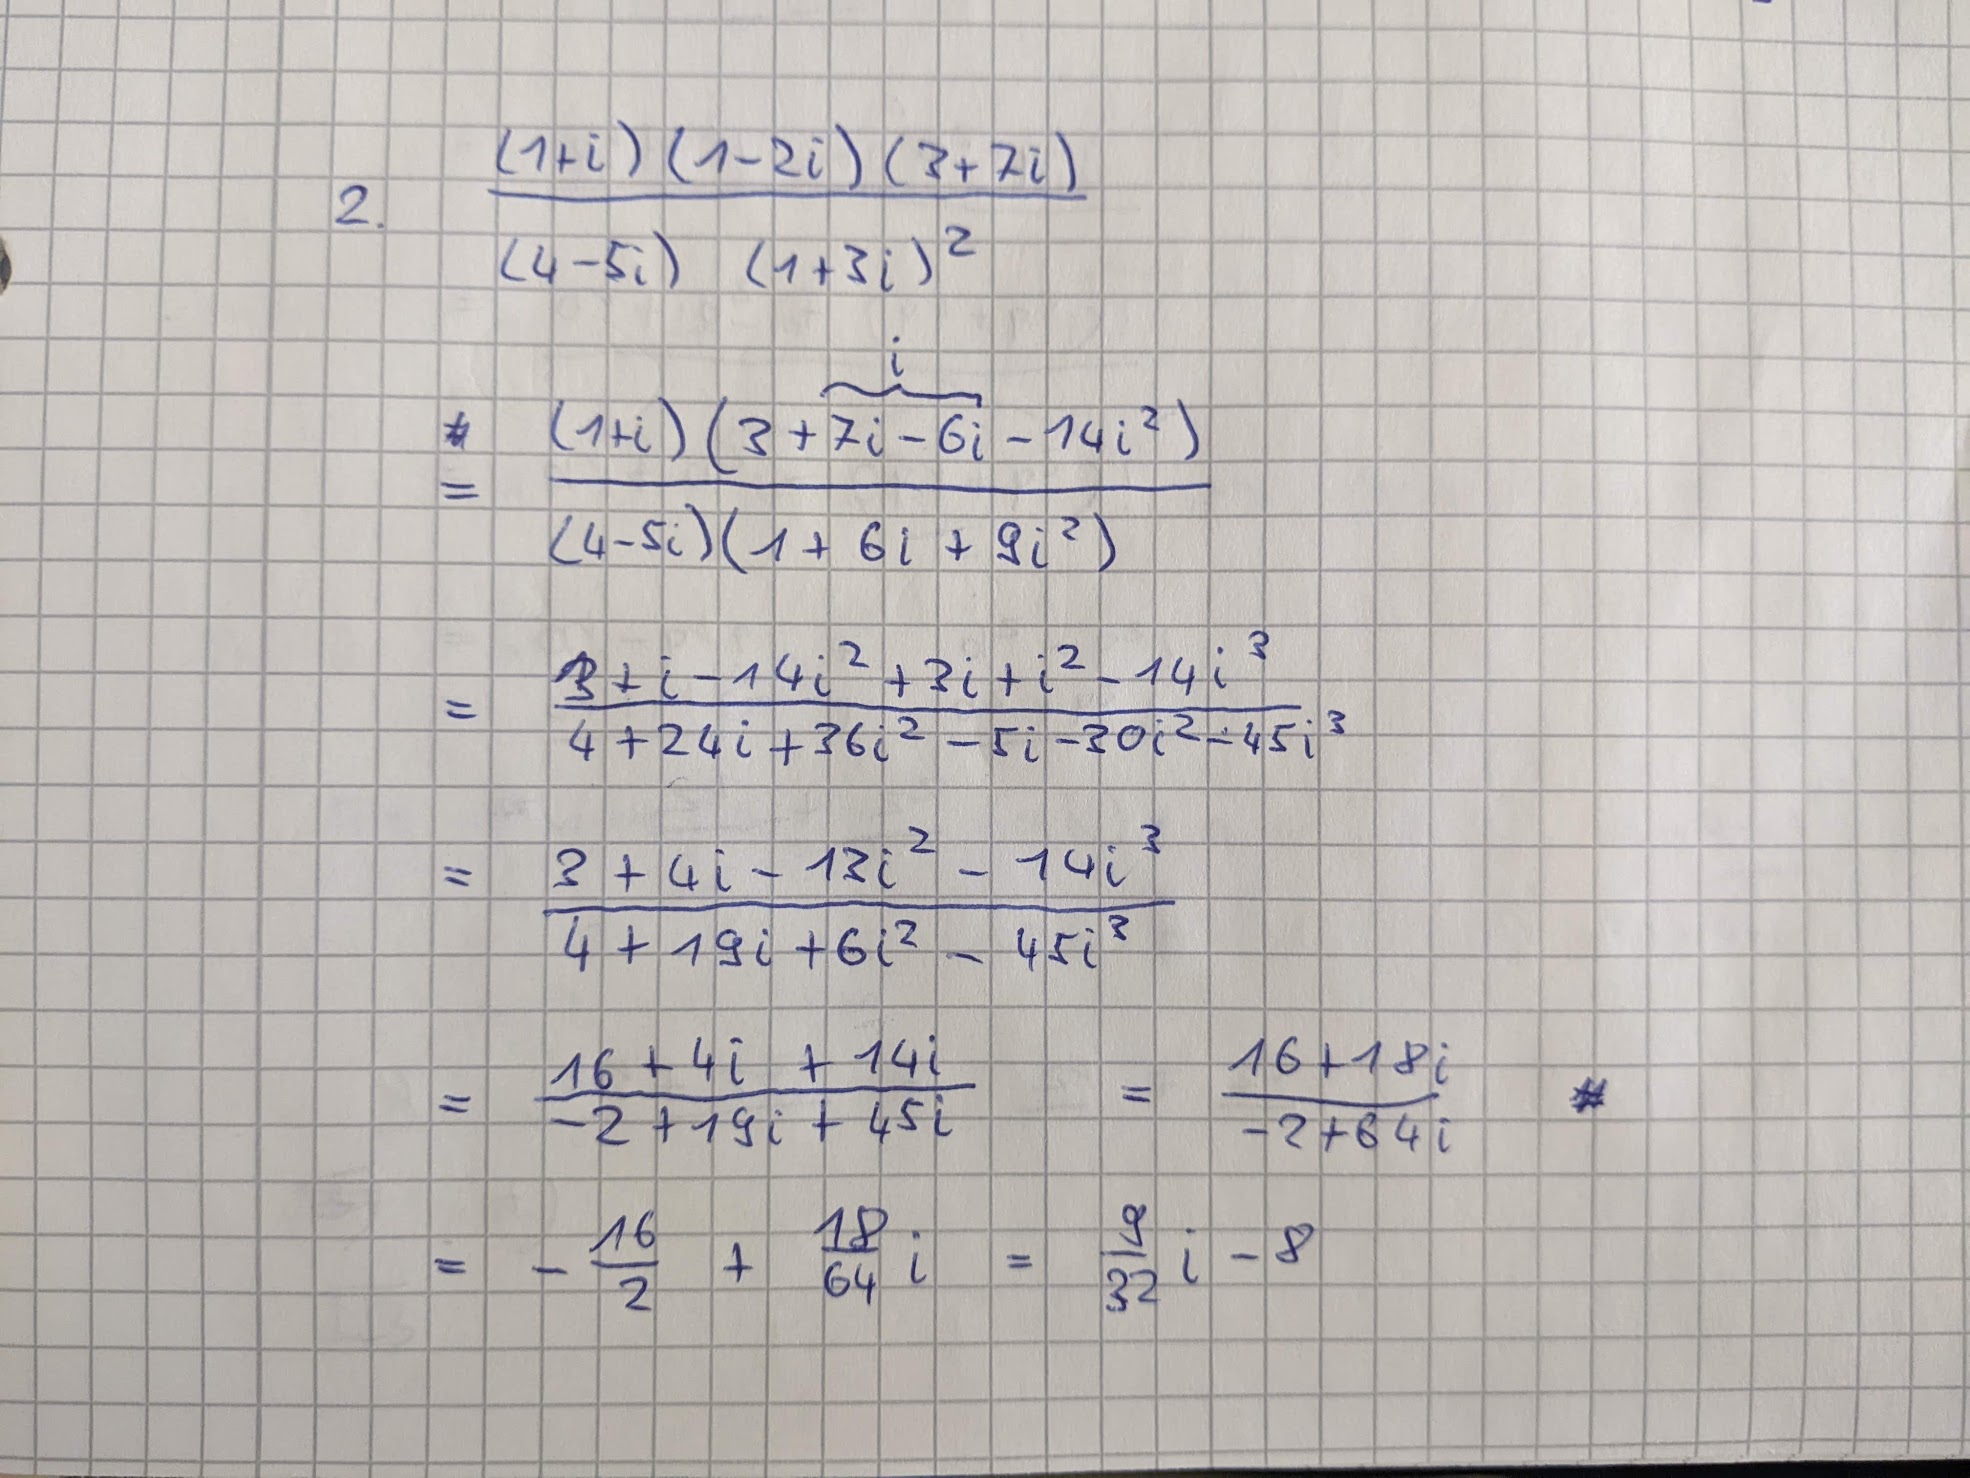 2. \frac{(1+i)(1-2i)(3+7i)}{(4-5i) (1+3i)^2}
* = \frac{(1+i)(3+\overbrace{7i-6i}^{i}-14i^2)}{(4-5i)(1+6i+9i^2)}
= \frac{3+i-14i^2+3i+i^2-14i^3}{4+24i+36i^2-5i-30i^2-45i^3}
= \frac{3+4i-13i^2-14i^3}{4+19i+6i^2-45i^3}
= \frac{16+4i+14i}{-2+19i+45i} = \frac{16+18i}{-2+64i} *
= -\frac{16}{2} + \frac{18}{64}i = \frac{9}{32}i-8